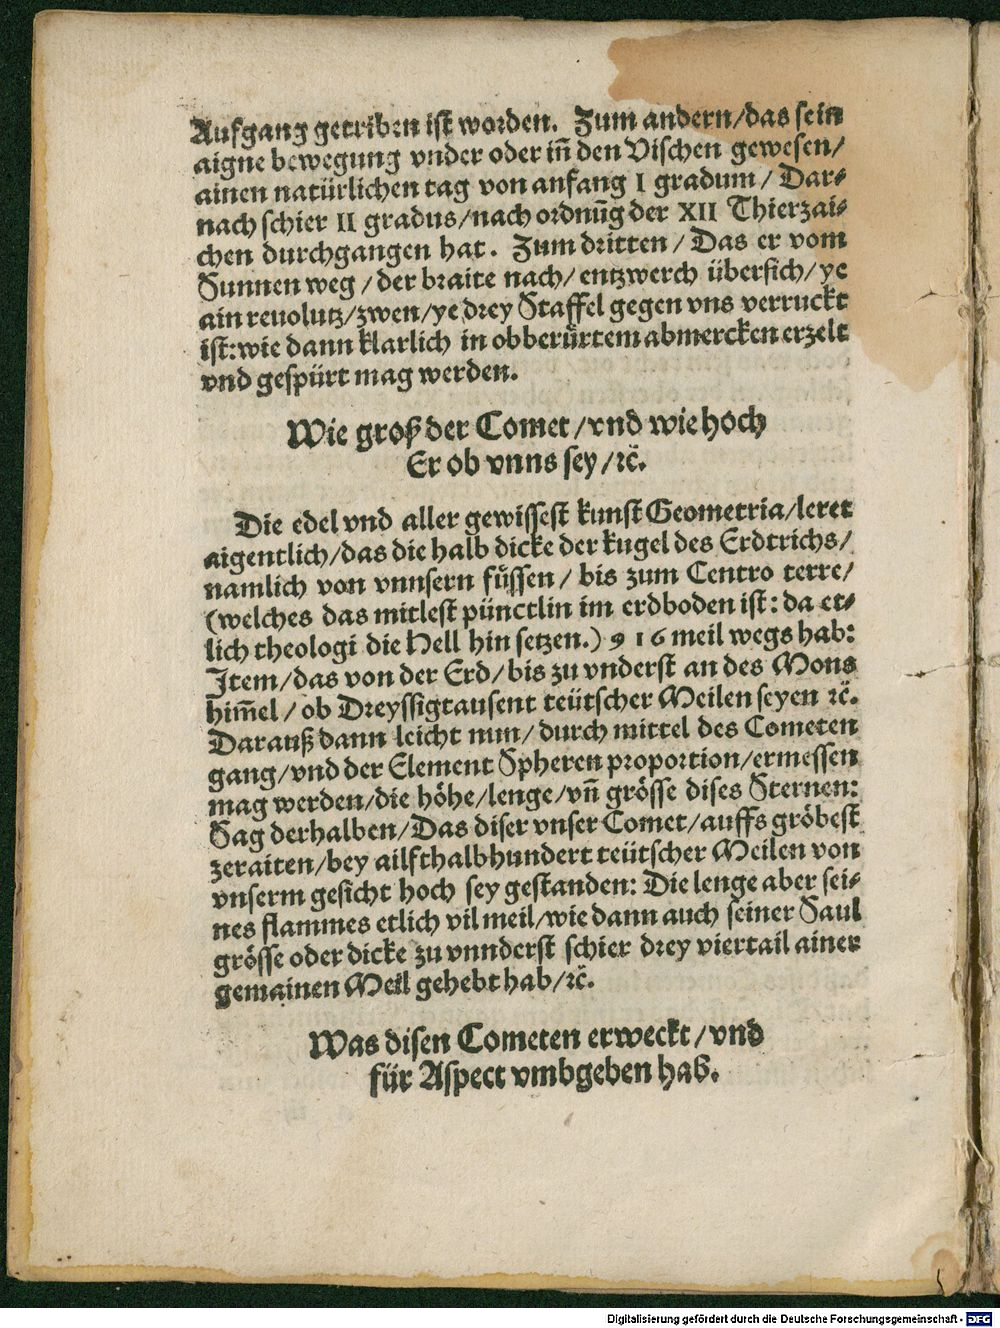 Aufgang getriben ist worden. Zum andern/das sein
aigne bewegung vnder oder in̄ den Vischen gewesen/
ainen natürlichen tag von anfang I gradum/ Dar⸗
nach schier II gradus/nach ordnūg der XII Thierzai⸗
chen durchgangen hat. Zum dritten/ Das er vom
Sunnen weg/der braite nach/ entzwerch übersich/ye
ain reuolutz/zwen/ye drey Staffel gegen vns verruckt
ist:wie dann klarlich in obberürtem abmercken erzelt
vnd gespürt mag werden.
Wie groß der Comet/vnd wie hoch
Er ob vnns sey/ꝛc̈.
Die edel vnd aller gewissest kunst Geometria/leret
aigentlich/das die halb dicke der kugel des Erdtrichs/
namlich von vnnsern füssen/ bis zum Centro terre/
(welches das mitlest pünctlin im erdboden ist: da et⸗
lich theologi die Hell hin setzen.) 916 meil wegs hab:
Item/das von der Erd/bis zu vnderst an des Mons
him̄el/ ob Dreyssigtausent teütscher Meilen seyen ꝛc̈.
Darauß dann leicht nun/durch mittel des Cometen
gang/vnd der Element Spheren proportion/ermessen
mag werden/die höhe/lenge/vn̄ grösse dises Sternen:
Sag derhalben/Das diser vnser Comet/auffs gröbest
zeraiten/bey ailfthalbhundert teütscher Meilen von
vnserm gesicht hoch sey gestanden: Die lenge aber sei⸗
nes flammes etlich vil meil/wie dann auch seiner Saul
grösse oder dicke zu vnnderst schier drey viertail ainer
gemainen Meil gehebt hab/ꝛc̈.
Was disen Cometen erweckt/vnd
für Aspect vmbgeben hab.
Digitalisierung gefördert durch die Deutsche Forschungsgemeinschaft - DFG